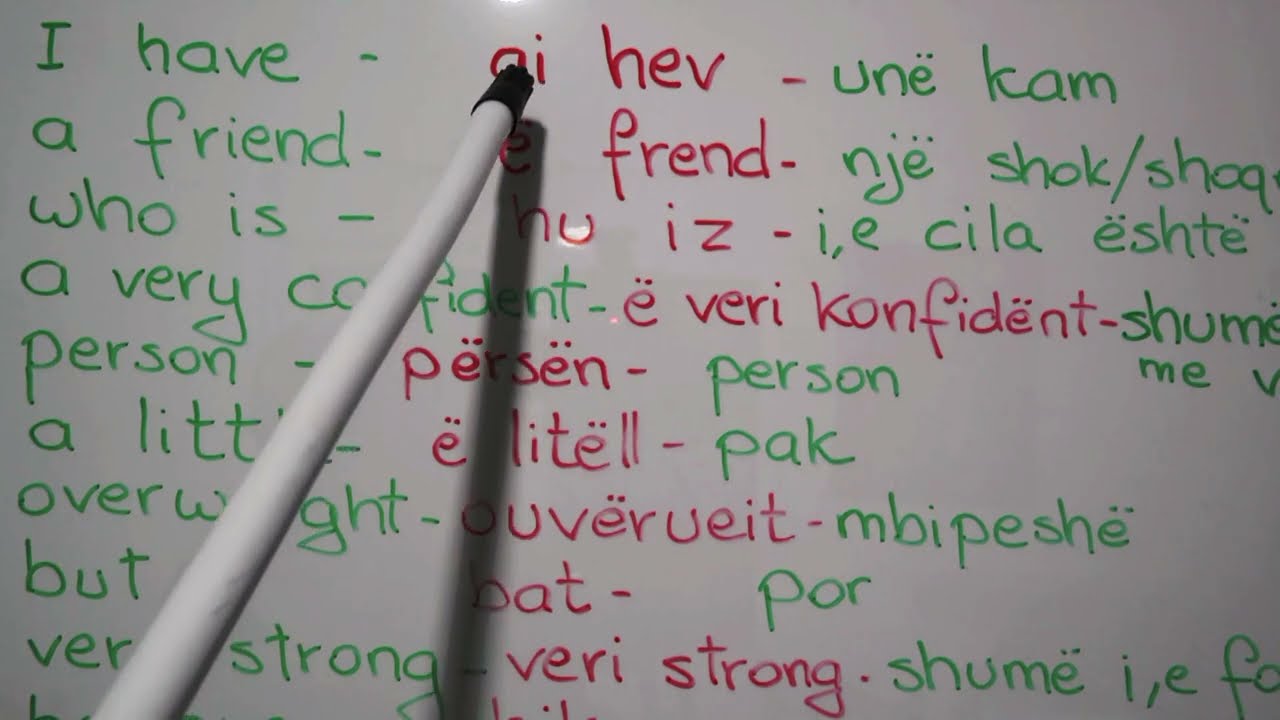 I have - ai hev - unë kam
a friend - ë frend - një shok/shoq
who is - hu iz - i,e cila është
a very confident - ë veri konfidënt - shumë
person - përsën - person me v
a litt - ë litëll - pak
overweight - ouvërueit - mbipeshë
but bat - por
very strong - veri strong. shumë i,e fo